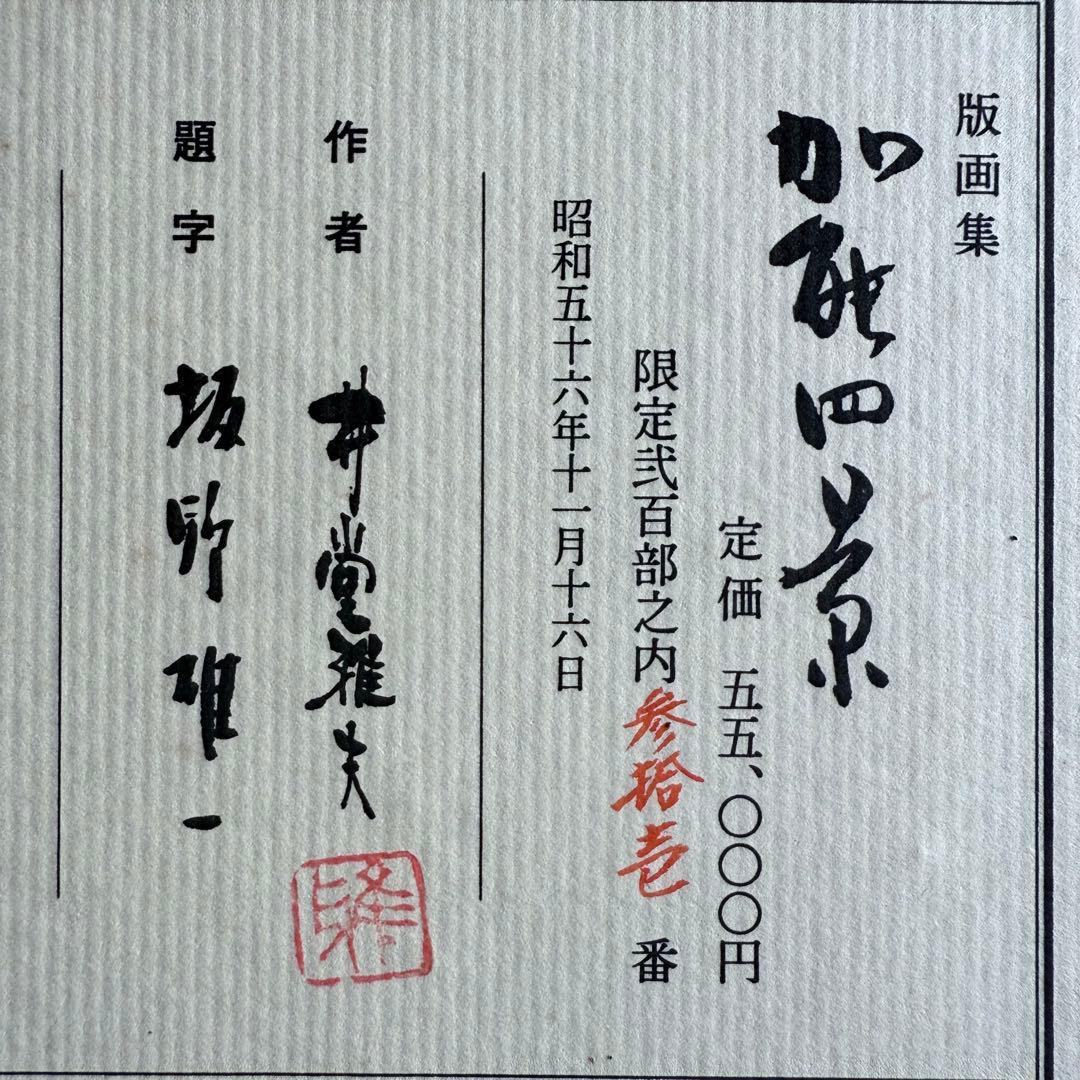 版画集
加能四景
定価　五五、〇〇〇円
限定弐百部之内参拾壱番
昭和五十六年十一月十六日
作者　井堂雅夫
題字　坂野雄一